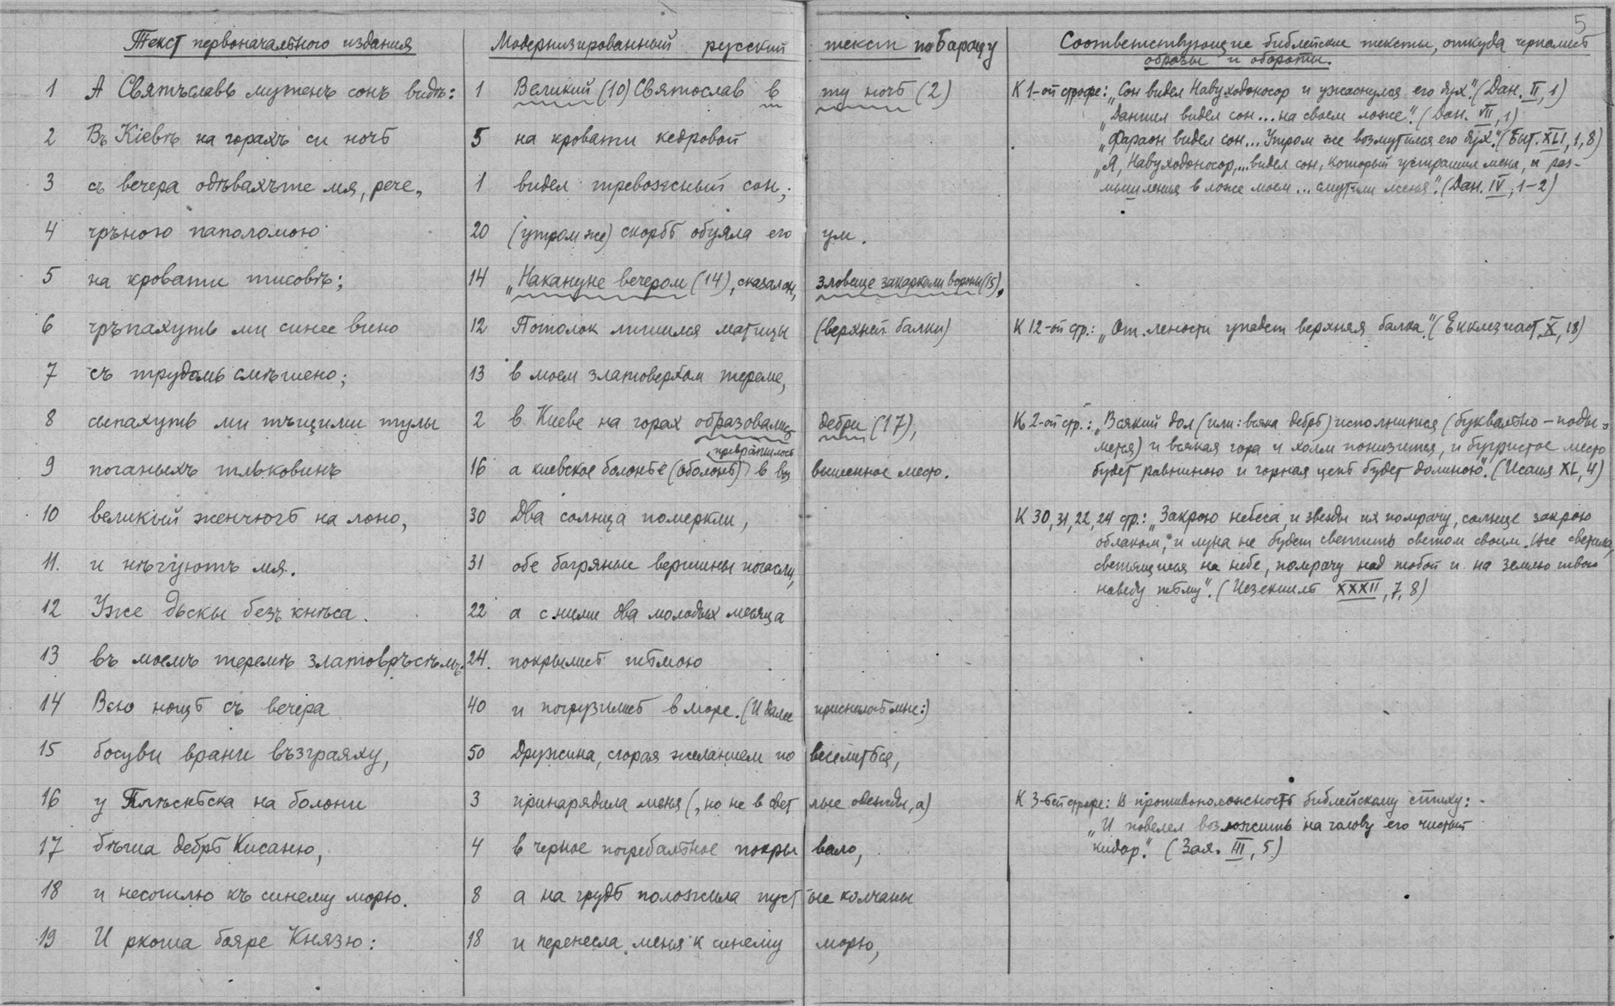 5
Текст первоначального издания
Модернизированный русский текст по Барацу
Соответствующие библейские тексты, откуда черпались
образы и обороты.
1 А Святъславь мутенъ сонъ видѣ:
2 Въ Кіевѣ на горахъ си ночь
3 съ вечера одѣвахъте мя, рече,
4 чръною паполомою
5 на кровати тисовѣ;
6 чръпахуть ми синее вино
7 съ трудомь смѣшено;
8 сыпахуть ми тъщими тулы
9 поганыхъ тльковинъ
10 великый женчюгь на лоно,
11. и нѣгуютъ мя.
12 Уже дьскы безъ кнѣса.
13 въ моемъ теремѣ златовръсѣмъ.
14 Всю нощь съ вечера
15 босуви врани възграяху,
16 у Плѣсньска на болони
17 бѣша дебрь Кисаню,
18 и несошлю къ синему морю.
19 И ркоша бояре Князю:
1 Великий (10) Святослав в ту ночь (2)
5 на кровати кедровой
1 видел тревожный сон;
20 (утром же) скорбь обуяла его ум.
14 „Накануне вечером (14), сказал он, зловеще закаркали вороны (15),
12 Потолок лишился матицы (верхней балки)
13 в моем златоверхом тереме,
2 в Киеве на горах образовались дебри (17),
превратилось
16 а киевское болонье (оболонь) в возвышенное место.
30 Два солнца померкли,
31 обе багряные вершины погасли,
22 а с ними два молодых месяца
24. покрылись тьмою
40 и погрузились в море. (И далее приснилось мне:)
50 Дружина, сгорая желанием повеселиться,
3 принарядила меня (, но не в светлые одежды, а)
4 в черное погребальное покрывало,
8 а на грудь положила пустые колчаны
18 и перенесла меня к синему морю,
К 1-ой строфе: „Сон видел Навуходоносор и ужаснулся его дух." (Дан. II, 1)
„Даниил видел сон... на своем ложе." (Дан. VII, 1)
„Фараон видел сон... Утром же возмутился его дух." (Быт. XLI, 1, 8)
„Я, Навуходоносор,... видел сон, который устрашил меня, и раз-
мышления в ложе моем... смутили меня." (Дан. IV, 1-2)
К 12-ой стр.: „От лености упадет верхняя балка." (Екклезиаст X, 18)
К 2-ой стр.: „Всякий дол (или: всяка дебрь) исполнится (буквально - поды=
мется) и всякая гора и холм понизится, и бугристое место
будет равниною и горная цепь будет долиною." (Исаия XL, 4)
К 30, 31, 22, 24 стр.: „Закрою небеса и звезды их помрачу, солнце закрою
облаком, и луна не будет светить светом своим. Все светила,
светящиеся на небе, помрачу над тобой и на землю твою
наведу тьму". (Иезекииль XXXII, 7, 8)
К 3-ьей строфе: В противоположность библейскому стиху:
„И повелел возложить на голову его чистый
кидар." (Зах. III, 5)